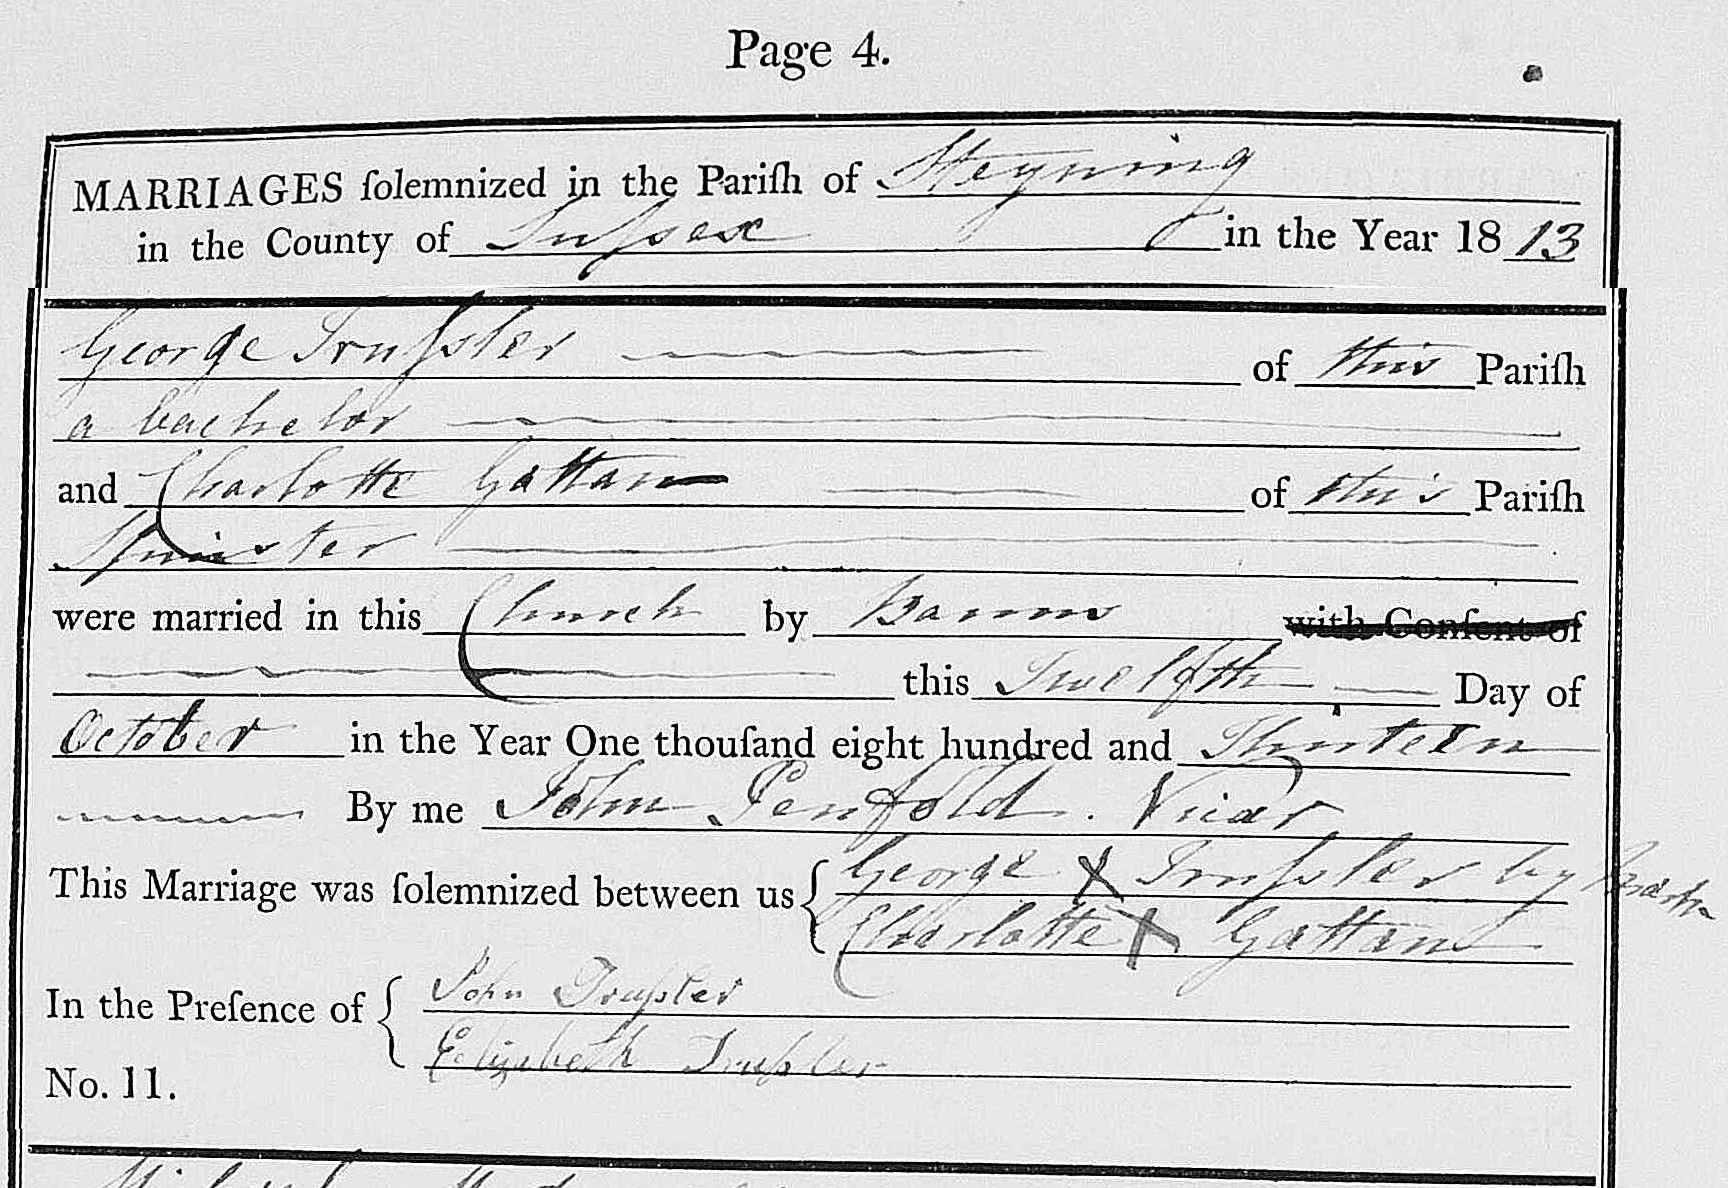 Page 4.
MARRIAGES ſolemnized in the Pariſh of Steyning
in the County of Suſsex in the Year 1813
George Truſsler of this Pariſh
a bachelor
and Charlotte Gattan of this Pariſh
Spinster
were married in this Church by Banns with Conſent of
this Twelfth Day of
October in the Year One thouſand eight hundred and Thirteen
By me John Penfold. Vicar
This Marriage was ſolemnized between us { George X Truſsler by mark
Charlotte X Gattan
In the Preſence of { John Truſsler
Elizabeth Truſsler
No. 11.